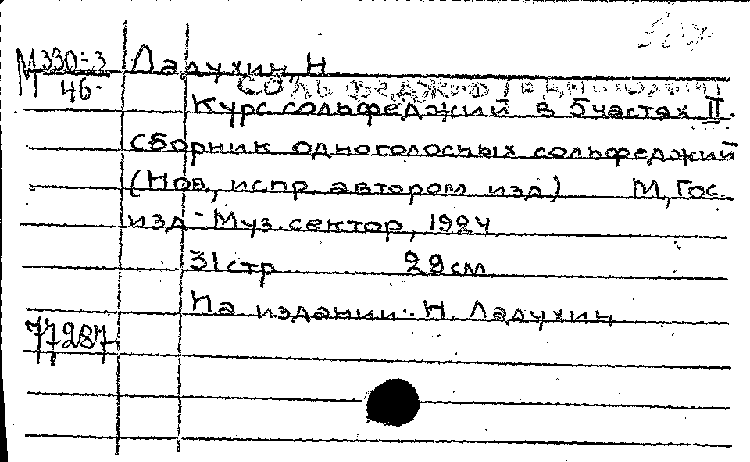 М330-3 Ладухин, Н
М 46
СОЛЬФЕДЖИО
Курс сольфеджий в 5 частях II.
сборник одноголосных сольфеджий
(Нов., испр. автором изд.) М, Гос.
изд- Муз. сектор, 1924
31 стр 29 см
На издании: Н. Ладухин
77287